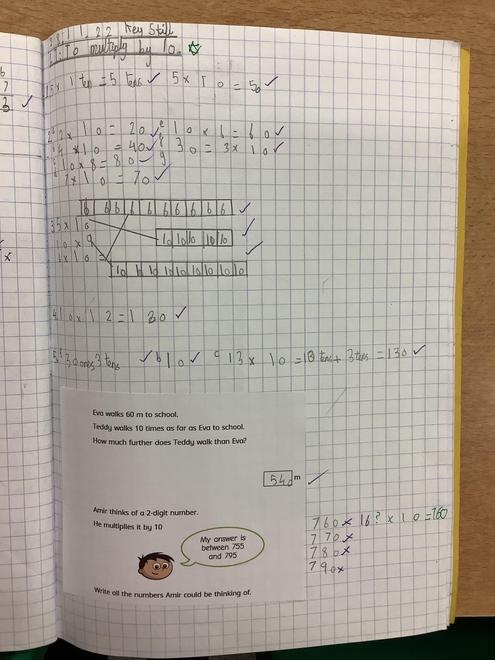 28.11.22 Key Skill
LI: To multiply by 10.
5 x 1 ten = 5 tens 5 x 10 = 50
2 x 10 = 20 e 10 x 6 = 60
4 x 10 = 40 f 30 = 3 x 10
10 x 8 = 80 g
7 x 10 = 70
6 6 6 6 6 6 6 6 6 6
3 5 x 10
10 x 9
6 x 10 =
10 10 10 10 10
10 10 10 10 10 10 10 10 10
4 10 x 12 = 120
5 a 30 ones 3 tens b 10 c 13 x 10 = 10 tens + 3 tens = 130
Eva walks 60 m to school.
Teddy walks 10 times as far as Eva to school.
How much further does Teddy walk than Eva?
540 m
Amir thinks of a 2-digit number.
He multiplies it by 10
My answer is
between 755
and 795
Write all the numbers Amir could be thinking of.
760 x 16? x 10 = 760
770 x
780 x
790 x